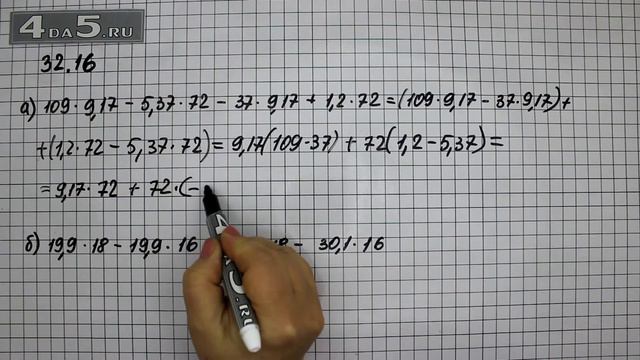 4DA5.RU
32.16
а) 109·9,17 − 5,37·72 − 37·9,17 + 1,2·72 = (109·9,17 − 37·9,17) +
+ (1,2·72 − 5,37·72) = 9,17(109−37) + 72(1,2 − 5,37) =
= 9,17·72 + 72·(−
б) 19,9·18 − 19,9·16 18 − 30,1·16